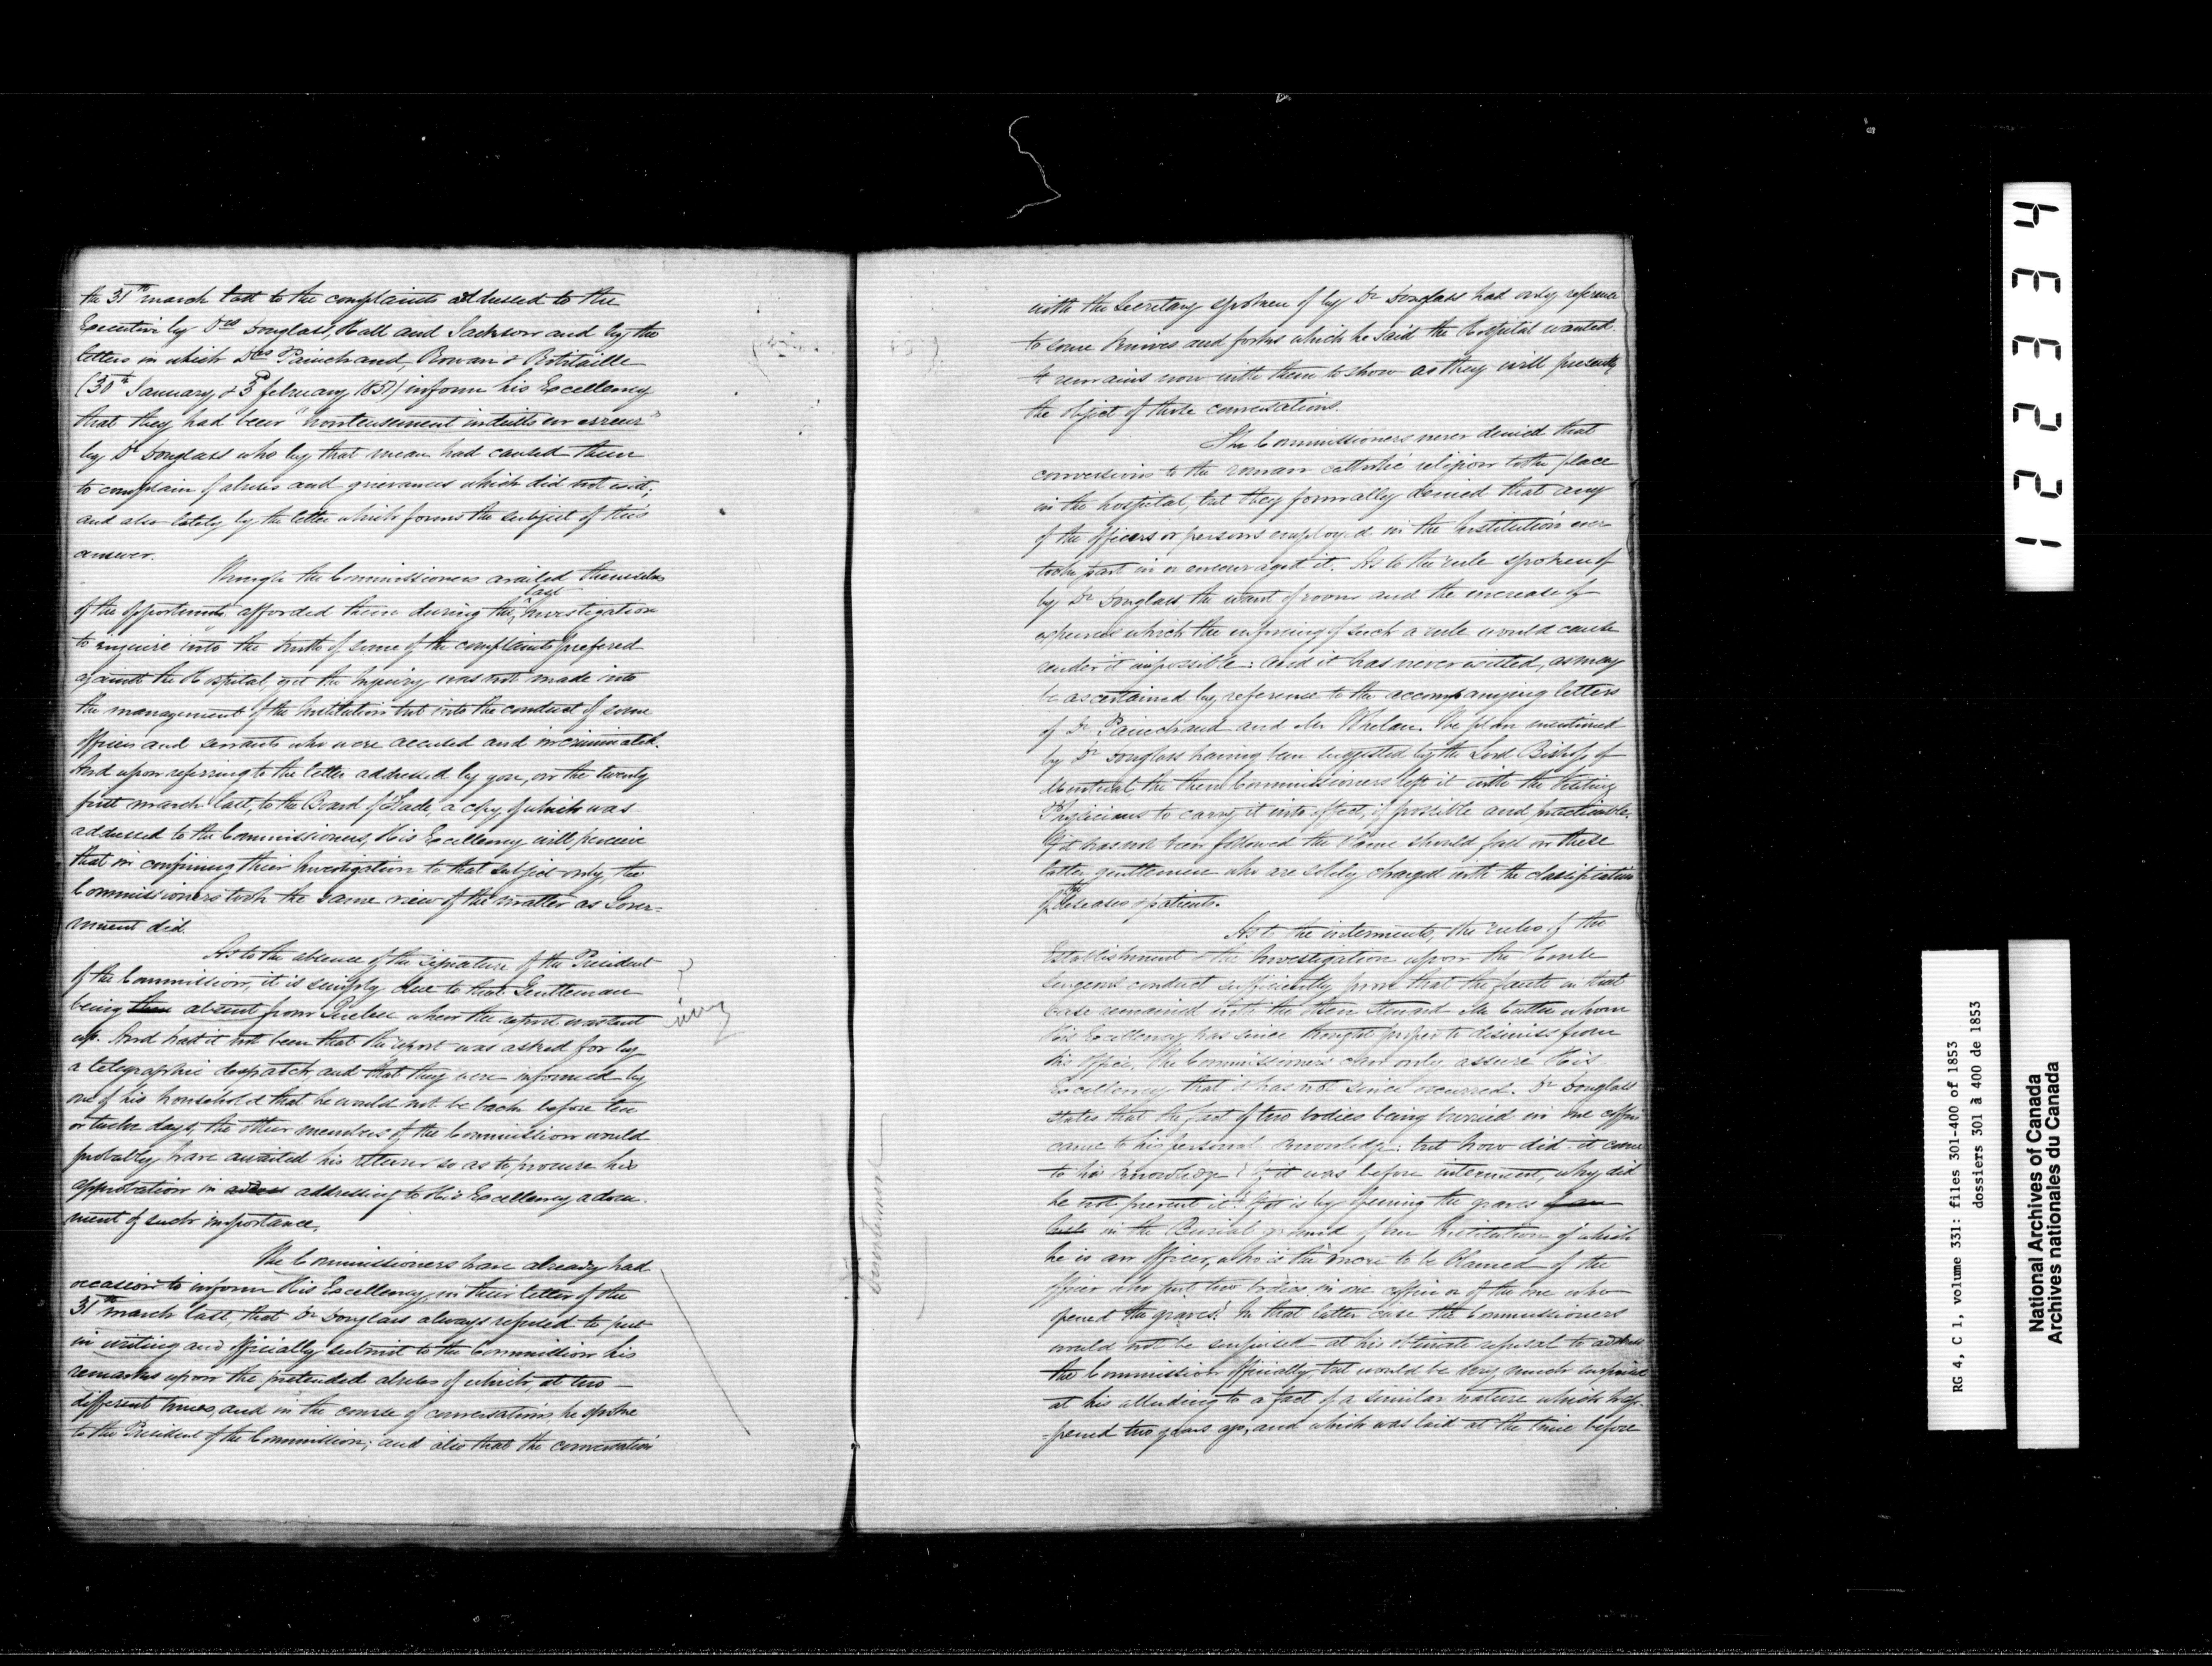 the 31st march last to the complaints addressed to the
Executive by Drs Douglass, Hall and Jackson and by the
letters in which Drs Painchaud, Rowan & Robitaille
(30th January & 3d february 1851) inform his Excellency
that they had been "honteusement induits en erreur"
by Dr Douglass who by that mean had caused them
to complain of abuses and grievances which did not exist;
and also lately by the letter which forms the subject of this
answer.
Though the Commissioners availed themselves
of the opportunity afforded them during the last Investigation
to enquire into the truth of some of the complaints prefered
against the Hospital, yet the Inquiry was not made into
the management of the Institution but into the conduct of some
officers and servants who were accused and incriminated.
And upon referring to the letter addressed by you, on the twenty
first march last, to the Board of Trade, a copy of which was
addressed to the Commissioners, His Excellency will perceive
that in confining their Investigation to that subject only, the
Commissioners took the same view of the matter as Gover=
nment did.
As to the absence of the signature of the President
of the Commission, it is simply due to that Gentleman
being then absent from Quebec when the report was sent
up. And had it not been that the report was asked for by
a telegraphic despatch and that they were informed by
one of his household that he would not be back before ten
or twelve days, the other members of the Commission would
probably have awaited his return so as to procure his
approbation in addressing to His Excellency a docu-
ment of such importance.
The Commissioners have already had
occasion to inform His Excellency, in their letter of the
31st march last, that Dr Douglass always refused to put
in writing and officially submit to the Commission his
remarks upon the pretended abuses of which, at two
different times, and in the course of conversations, he spoke
to the President of the Commission; and also that the conversation
with the Secretary spoken of by Dr Douglass had only reference
to some knives and forks which he said the Hospital wanted.
It remains now with them to show as they will presently
the object of those conversations.
The Commissioners never denied that
conversions to the roman catholic religion took place
in the hospital, but they formally denied that any
of the officers or persons employed in the Institution ever
took part in or encouraged it. As to the rule spoken of
by Dr Douglass, the want of room and the increase of
expenses which the enforcing of such a rule would cause
render it impossible: and it has never existed, as may
be ascertained by reference to the accompanying letters
of Dr Painchaud and Mr Whelan. The plan mentioned
by Dr Douglass having been suggested by the Lord Bishop of
Montreal, the then Commissioners left it with the Visiting
Physicians to carry it into effect, if possible and practicable.
If it has not been followed the blame should fall on these
latter gentlemen who are solely charged with the classification
of the diseases & patients.
As to the interments, the rules of the
Establishment & the Investigation upon the House
Surgeons conduct sufficiently prove that the fault in that
case remained with the then Steward Mr Cutter whom
His Excellency has since thought proper to dismiss from
his office. The Commissioners can only assure His
Excellency that it has not since occurred. Dr Douglass
states that the fact of two bodies being burried in one coffin
came to his personal knowledge: but how did it come
to his knowledge? If it was before interment, why did
he not prevent it? If it is by opening the graves
in the Burial ground of an Institution of which
he is an officer, who is the more to be blamed of the
officer who put two bodies in one coffin or of the one who
opened the graves? In that latter case the Commissioners
would not be surprised at his obstinate refusal to address
the Commission officially, but would be very much surprised
at his alluding to a fact of a similar nature which hap-
=pened two years ago, and which was laid at the time before
12334
RG 4, C 1, volume 331: files 301-400 of 1853
dossiers 301 à 400 de 1853
National Archives of Canada
Archives nationales du Canada